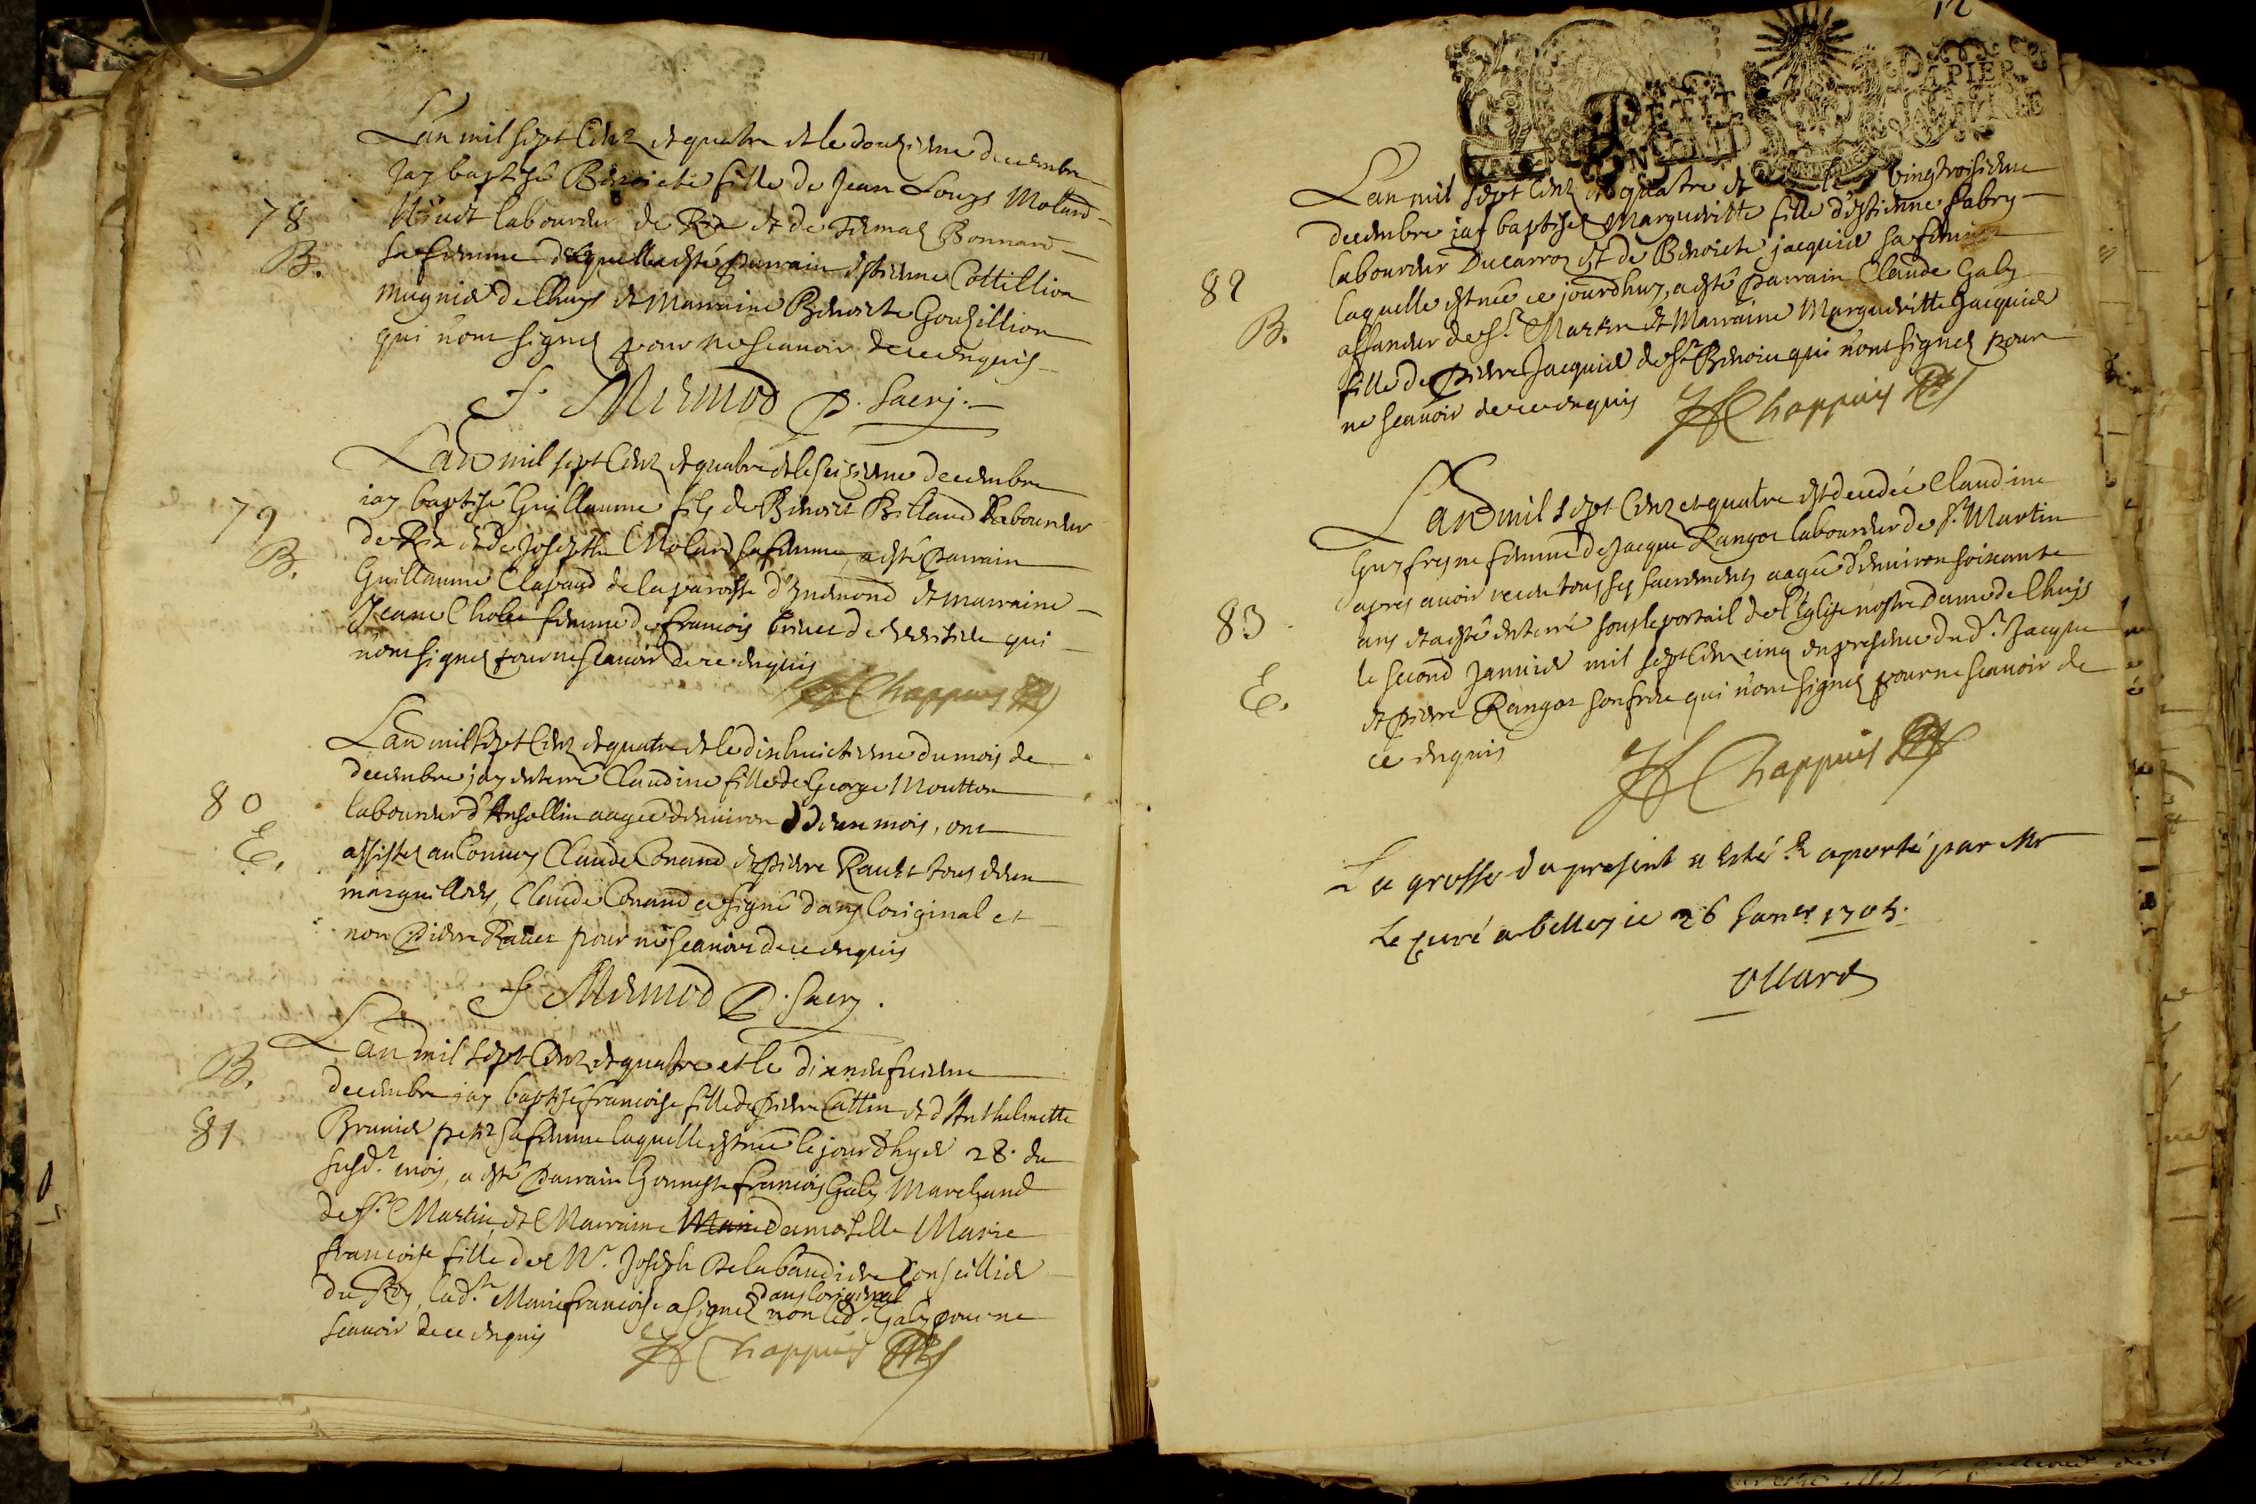 L'an mil sept Cenz et quatre et le douzieme decembre
jay baptisé Benoicte fille de Jean Louys Molard
laboureur de Rix et de Bonnard
sa femme de laquelle a esté parrain Estienne Cottillion
mugnier de Lhuys et Marraine Benoicte Gouzillion
qui n'ont signez pour ne scavoir de ce enquis
78
B.
S. Mermod P. Sacry.
L'an mil sept Cenz et quatre et le seizieme decembre
jay baptisé Guillaume fils de Benoict Billaud laboureur
de Rix et de Josepthe Molard sa femme, a esté parrain
Guillaume Clapaud de la paroisse d'Ynnimond et marraine
Jeane Cholet femme de francois de qui
n'ont signez pour ne scavoir de ce enquis
79
B.
Chappuis
L'an mil sept Cenz et quatre et le dixhuictieme du mois de
decembre jay enterré Claudine fille de George Moutton
laboureur d'Ansollin aagée d'environ deux mois, ont
assistez au Convoy Claude Conand et Pierre Ravet tous deux
marguilliers, Claude Conand a signé dans l'original et
non Pierre Ravet pour ne scavoir de ce enquis
80
E.
S. Mermod P. Sacry.
L'an mil sept Cenz et quatre et le dixneufvieme
decembre jay baptisé francoise fille de Pierre Cattin et d'Anthelmette
Brunier sa femme laquelle est née le jour d'hyer 28. du
susd.t mois, a esté parrain honneste francois Galy Marchand
de St. Martin, et Marraine Marie damoiselle Marie
francoise fille de Mr. Joseph Delabaudiere Conseillier
du Roy, lad.te Marie francoise a signez dans l'original non led. Galy pour ne
scavoir de ce enquis
B.
81
Chappuis
12
PETIT
PAPIER
L'an mil sept Cenz et quatre et le vingtroisieme
decembre jay baptisez Margueritte fille d'Estienne fabry
laboureur Ducarroz et de Benoicte jacquier sa femme
laquelle est née ce jourdhuy, a esté parrain Claude Galy
affaneur de St. Martin et Marraine Margueritte Jacquier
fille de Pierre Jacquier de St. Benoict qui n'ont signez pour
ne scavoir de ce enquis
82
B.
Chappuis
L'an mil sept Cenz et quatre est decedée Claudine
Guyfreyne femme de Jacque Rangot laboureur de St. Martin
apres avoir receu tous ses sacremens aagée d'environ soixante
ans et a esté enterré sous le portail de l'Eglise nostre Dame de Lhuys
le second Janvier mil sept Cenz cinq en presence dud.t Jacque
et Pierre Rangot son frere qui n'ont signez pour ne scavoir de
ce enquis
83
E.
Chappuis
La grosse du present a esté aporté par Mr
Le Curé a belley ce 26 Janer 1705.
Ollard